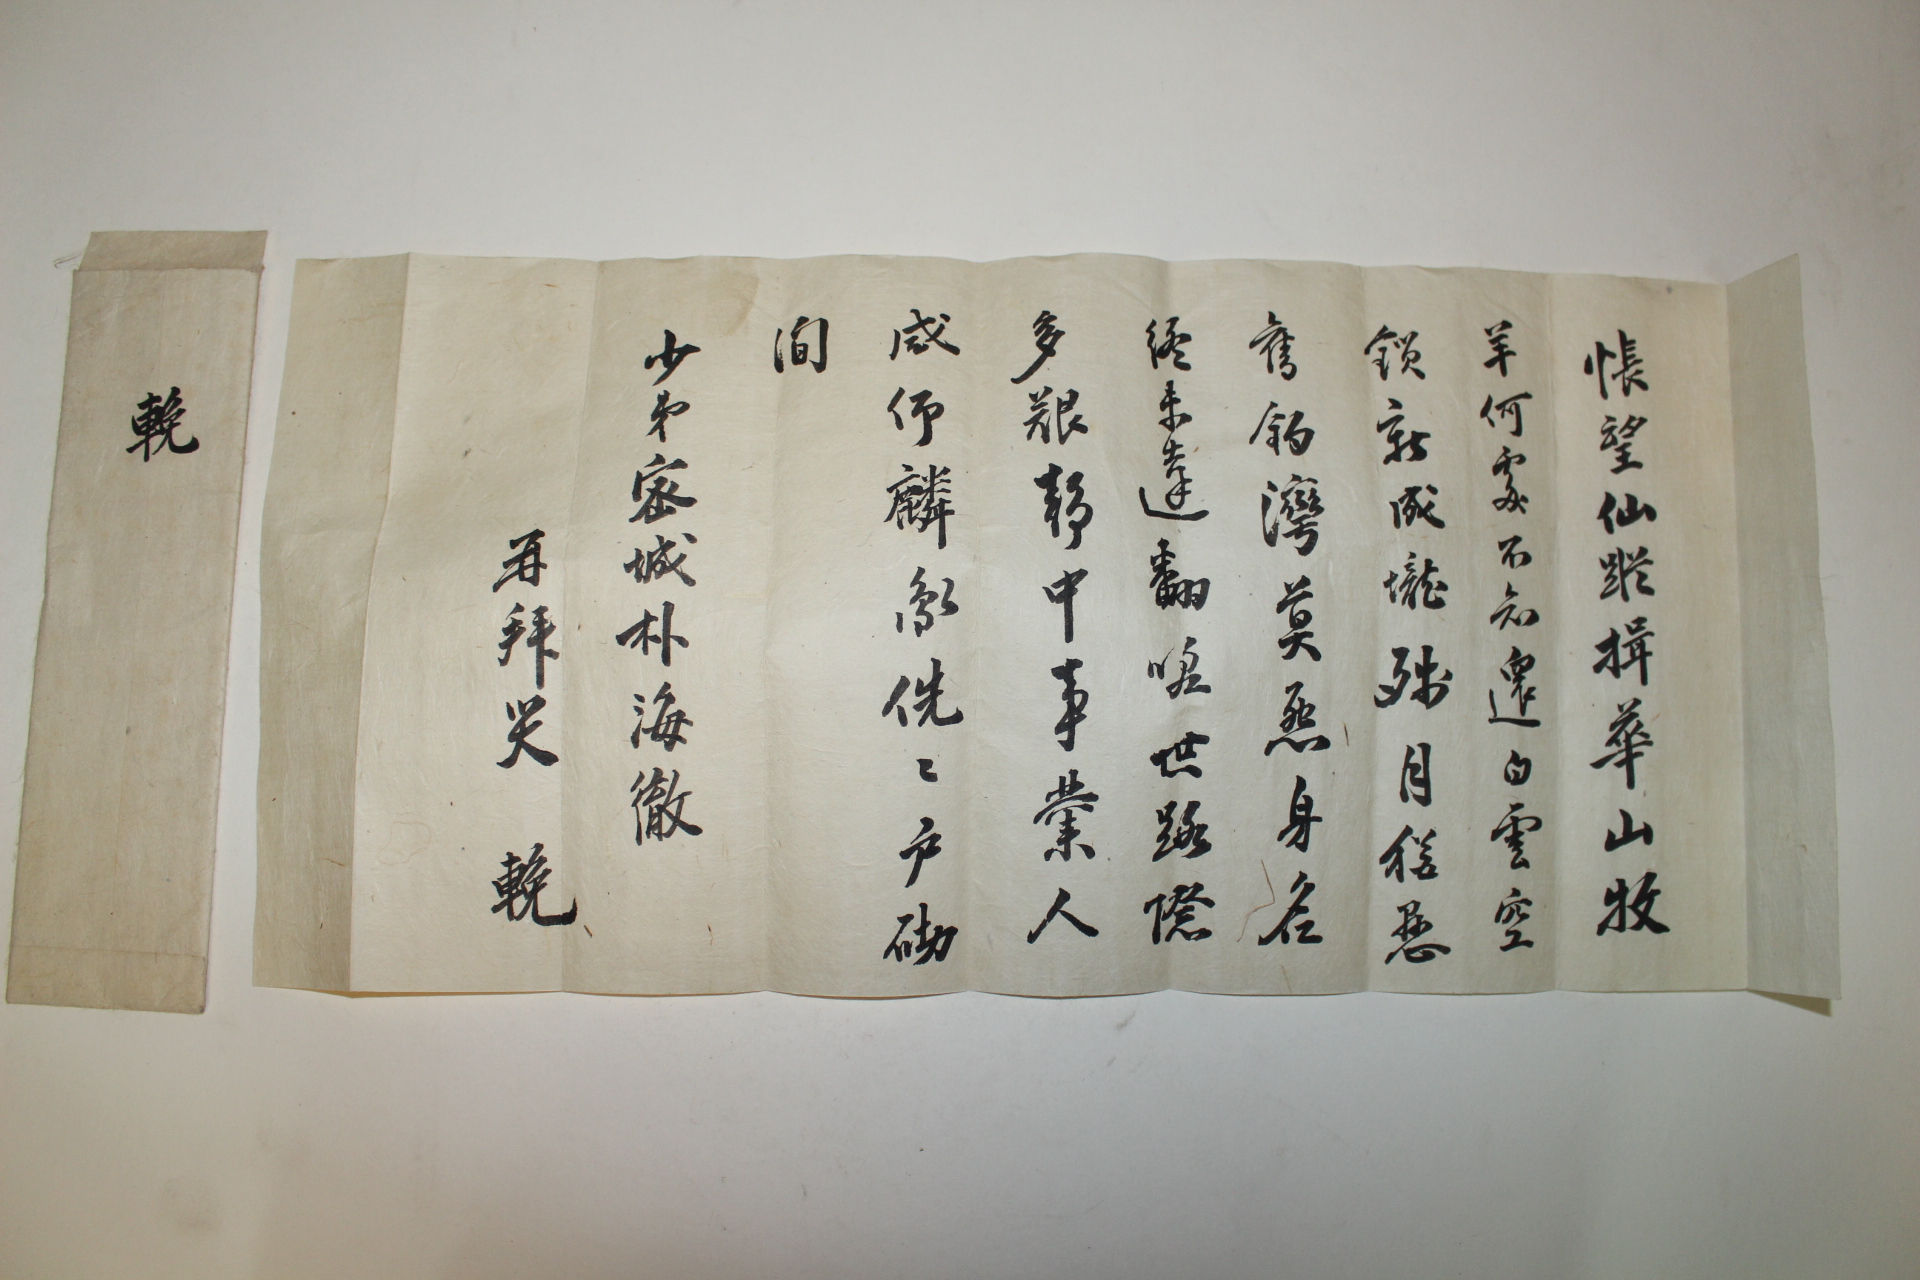 悵望仙蹤揖華山牧
羊何處不知還白雲空
鎖新成壠殘月猶懸
舊釣灣莫身名
終未達翻嗤世路際
多艱靜中事業人
咸仰麟侁〻戶砌
間
少弟密城朴海徹
再拜哭 輓
輓